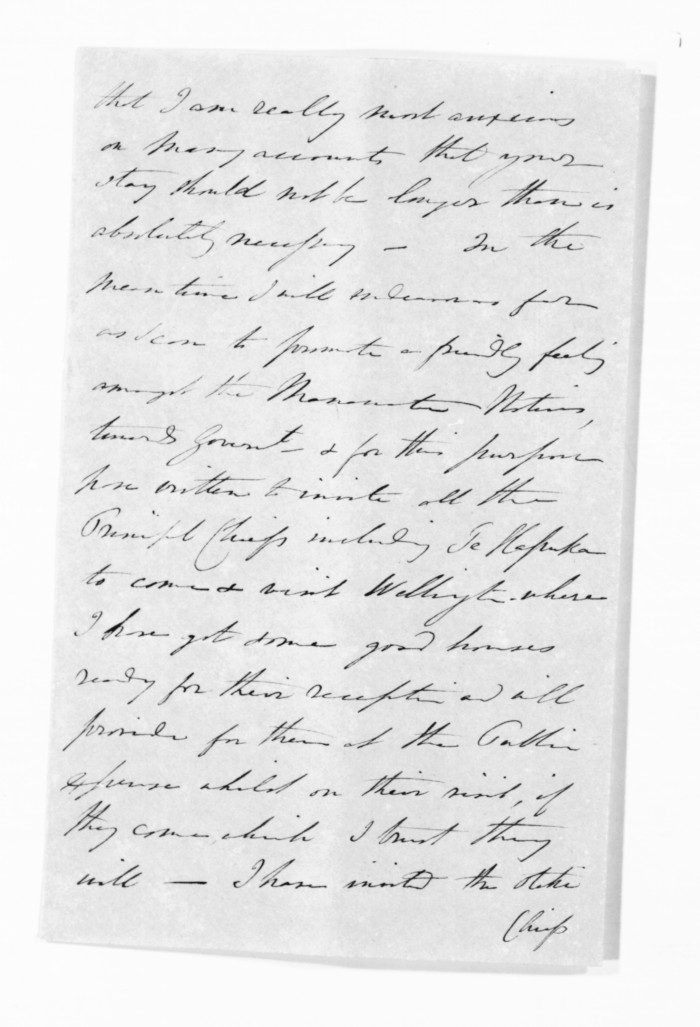 that I am really most anxious
on many accounts that your
stay should not be longer than is
absolutely necessary — In the
mean time I will endeavour as far
as I can to promote a friendly feeling
amongst the Manawatu Natives,
towards Governt & for this purpose
have written to invite all the
Principl Chiefs including Te
to come & visit Wellington where
I have got some good houses
ready for their reception and will
provide for them at the Public
Expense whilst on their visit, if
they come which I trust they
will — I have invited the Otaki
Chiefs